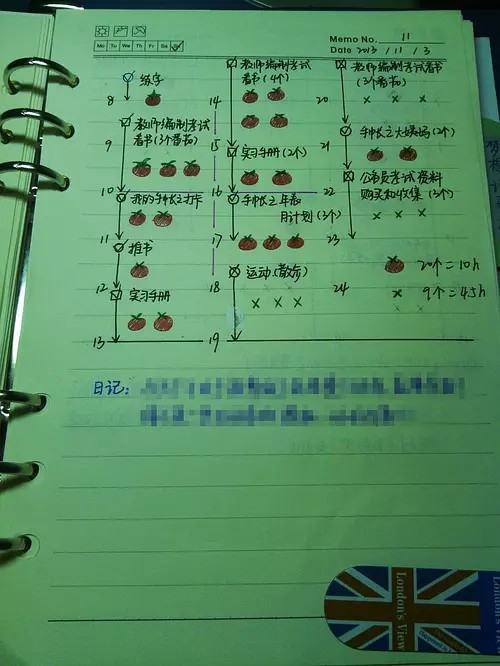 Memo No. 11
Mo Tu We Th Fr Sa Su
Date 2013 / 11 / 3
练字
8
9
教师编制考试
看书(3个番茄)
10
我的手帐之打卡
11
推书
12
实习手册
13
教师编制考试
看书(4个)
14
15
实习手册(2个)
16
手帐之年志
月计划(3个)
17
运动(散步)
18
19
教师编制考试看书
(3个番茄)
× × ×
20
21
手帐之大爆场(2个)
22
公务员考试资料
购买和收集(3个)
× × ×
23
24
× × ×
20个=10h
× 9个=4.5h
日记:
London's View